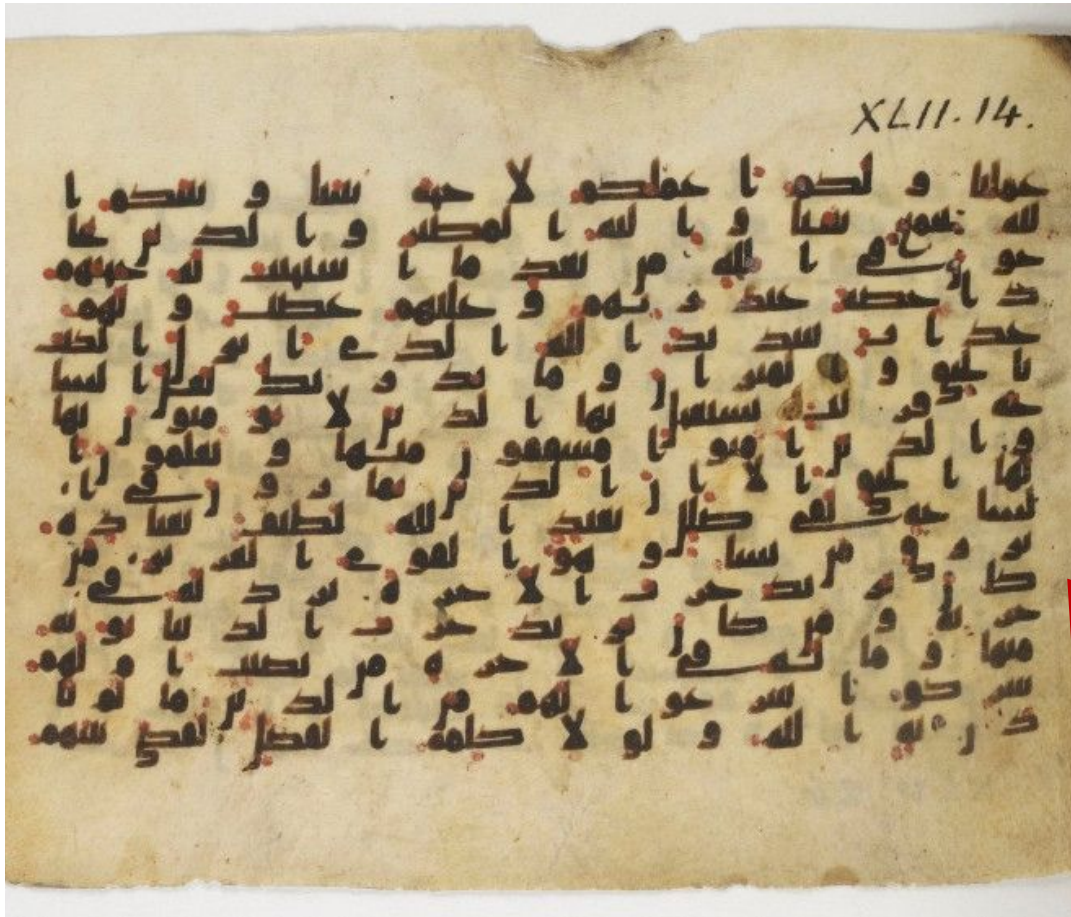 XLII-14.
عملنا و لكم ا عملكم لا حجة بيننا و بينكم ا
لله يجمع بيننا و ا ليه ا لمصير و ا لذين يحا
جون في ا لله من بعد ما ا ستجيب له حجتهم
د ا حضة عند ر بهم و عليهم غضب و لهم
عذ ا ب شديد ا لله ا لذي ا نزل ا لكتب
با لحق و ا لميز ا ن و ما يد ر يك لعل ا لسا
عة قر يب يستعجل بها ا لذ ين لا يو منو ن بها
و ا لذ ين ا منو ا مشفقو ن منها و يعلمو ن ا
نها ا لحق ا لا ا ن ا لذ ين يما ر و ن في ا
لسا عة لفي ضلل بعيد ا لله لطيف بعبا د ه
ير ز ق من يشا و هو ا لقو ي ا لعز يز من
كا ن ير يد حر ث ا لا خر ة نز د له في
حر ثه و من كا ن ير يد حر ث ا لد نيا نو ته
منها و ما له في ا لا خر ة من نصيب ا م لهم
شر كو ا شر عو ا لهم من ا لد ين ما لم يا
ذ ن به ا لله و لو لا كلمة ا لفصل لقضي بينهم